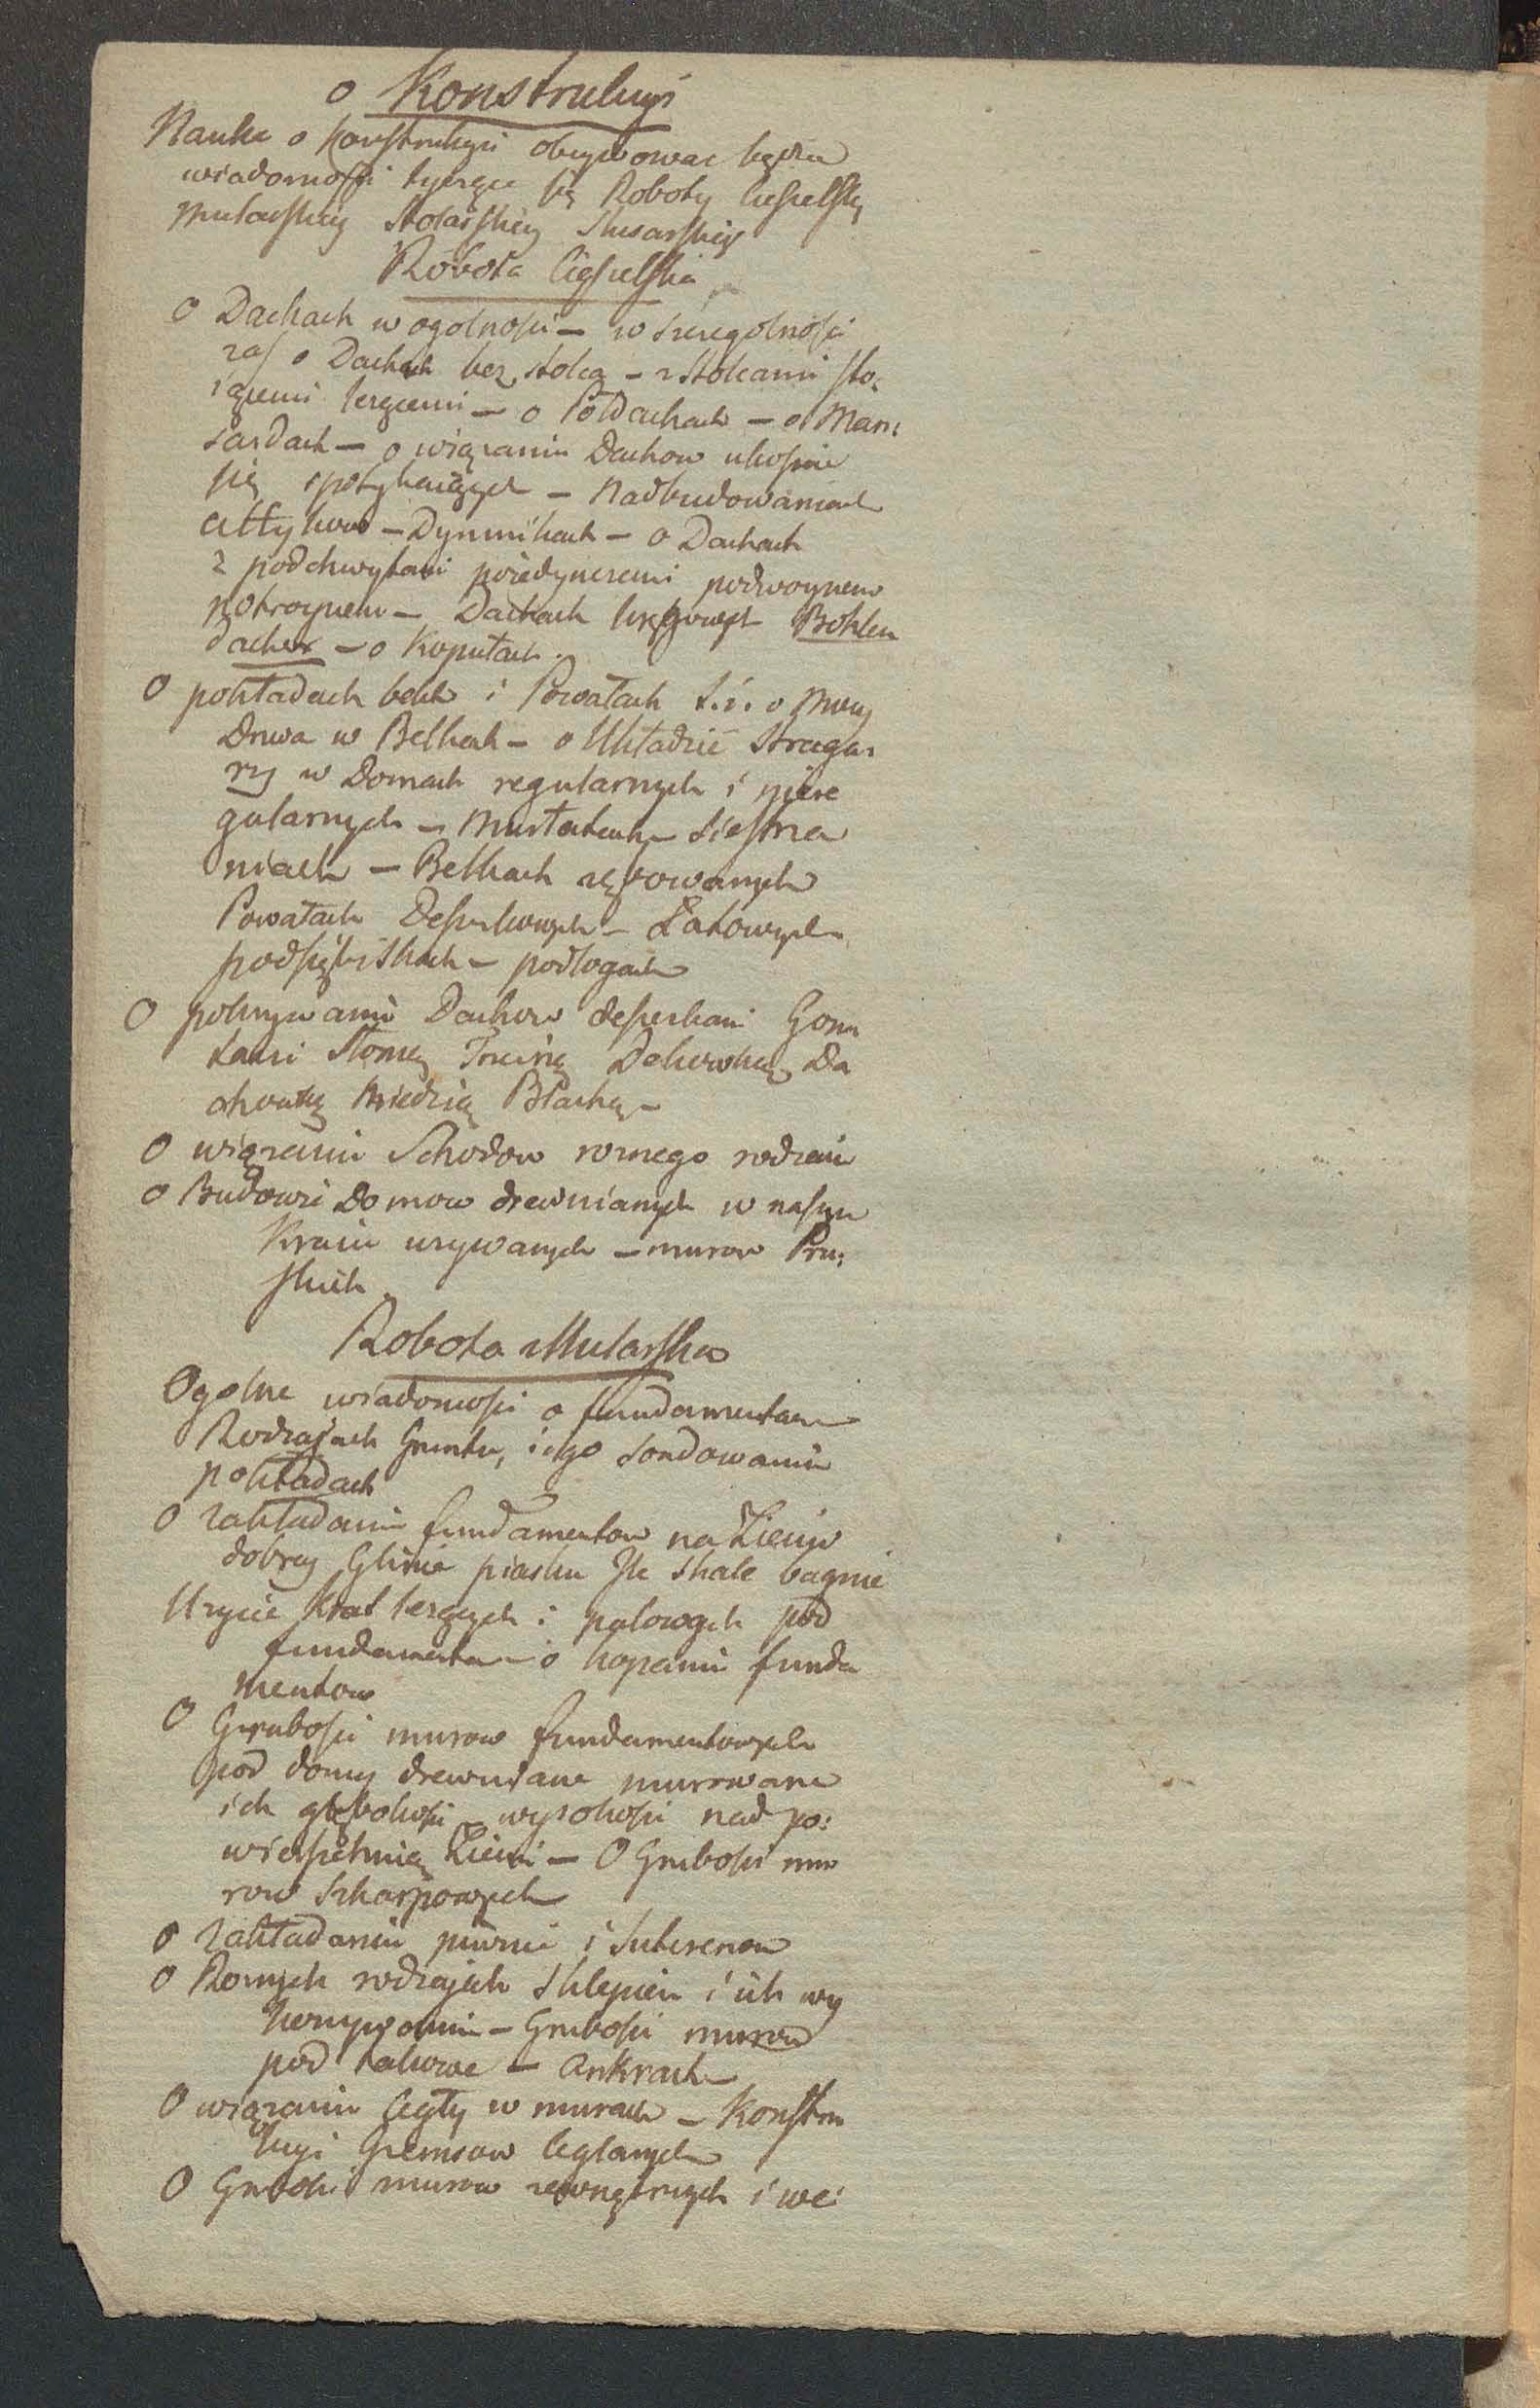 o Konstrukcyi
Nauka o Konstrukcyi obeymować będzie
wiadomości tyczące się Roboty Ciesielskiey
Mularskiey Stolarskiey Slusarskiey
Robota Ciesielska
O Dachach w ogolności – w szczegolności
zaś o Dachach bez stolca – z Stolcami sto:
iącemi leżącemi – o Półdachach – o Man:
sardach – o wiązaniu Dachow ukośnie
się spotykaiących – Nadbudowaniach
attykow – Dymnikach – o Dachach
z podchwytami poiedynczemi podwoynemi
potroynemi – Dachach krążynowych Bohlen
dacher – o Kopułach.
O pokładach belek i Powałach t.i. o Mocy
Drzwa w Belkach – o Układzie Stragar
zy w Domach regularnych i niere
gularnych – Murłatach – Siestrza
niach – Belkach zębowanych
Powałach Deskowych – Łatowych
podsiębitkach – podłogach
O pokrywaniu Dachow deskami Gon
tami Słomą Trzciną Dachowką Da
chowką Miedzią Blachą –
O wiązaniu Schodow roznego rodzaiu
O Budowie Domow drewnianych w naszym
Kraiu uzywanych – murow Pru:
skich.
Robota Mularska
Ogolne wiadomości o fundamentach
Rodzajach Gruntu, iego sondowaniu
pokładach
O zakładaniu fundamentow na Ziemi
dobrey Glinie piasku Ile skale bagnie
Uzycie Krat leżących i palowych pod
fundamenta – o kopaniu funda
mentow
O Grubości murow fundamentowych
pod domy drewniane murowane
ich głębokości – wysokości nad po:
wierzchnią Ziemi – O Grubości mu
row Szkarpowych
O zakładaniu piwnic i Suterenow
O Roznych rodzajach Sklepien i ich wy
konywaniu – Grubości murow
pod takowe – Ankrach
O wiązaniu Cegły w murach – Konstru
kcyi Gzemsow Ceglanych
O Grubości murow zewnętrznych i we: